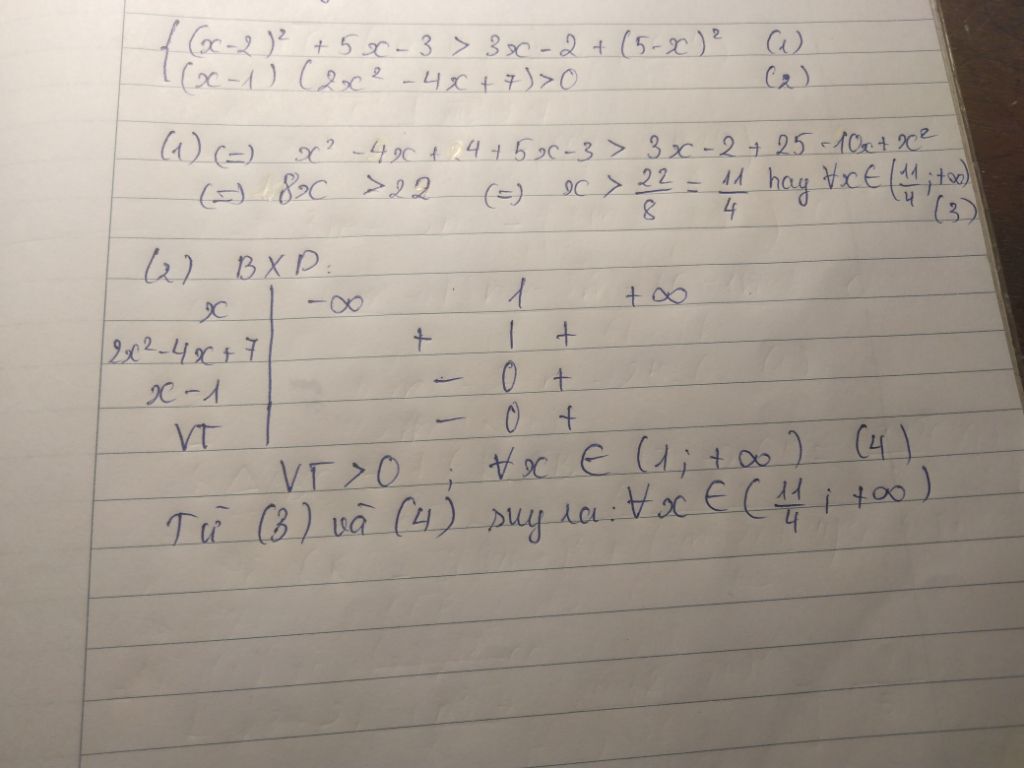 (x-2)² + 5x - 3 > 3x - 2 + (5-x)² (1)
(x-1) (2x² - 4x + 7) > 0 (2)
(1) (=) x² - 4x + 4 + 5x - 3 > 3x - 2 + 25 - 10x + x²
(=) 8x > 22 (=) x > 22/8 = 11/4 hay ∀x ∈ (11/4; +∞) (3)
(2) BXD:
x -∞ 1 +∞
2x² - 4x + 7 + | +
x - 1 - 0 +
VT - 0 +
VT > 0 ; ∀x ∈ (1; +∞) (4)
Từ (3) và (4) suy ra: ∀x ∈ (11/4; +∞)